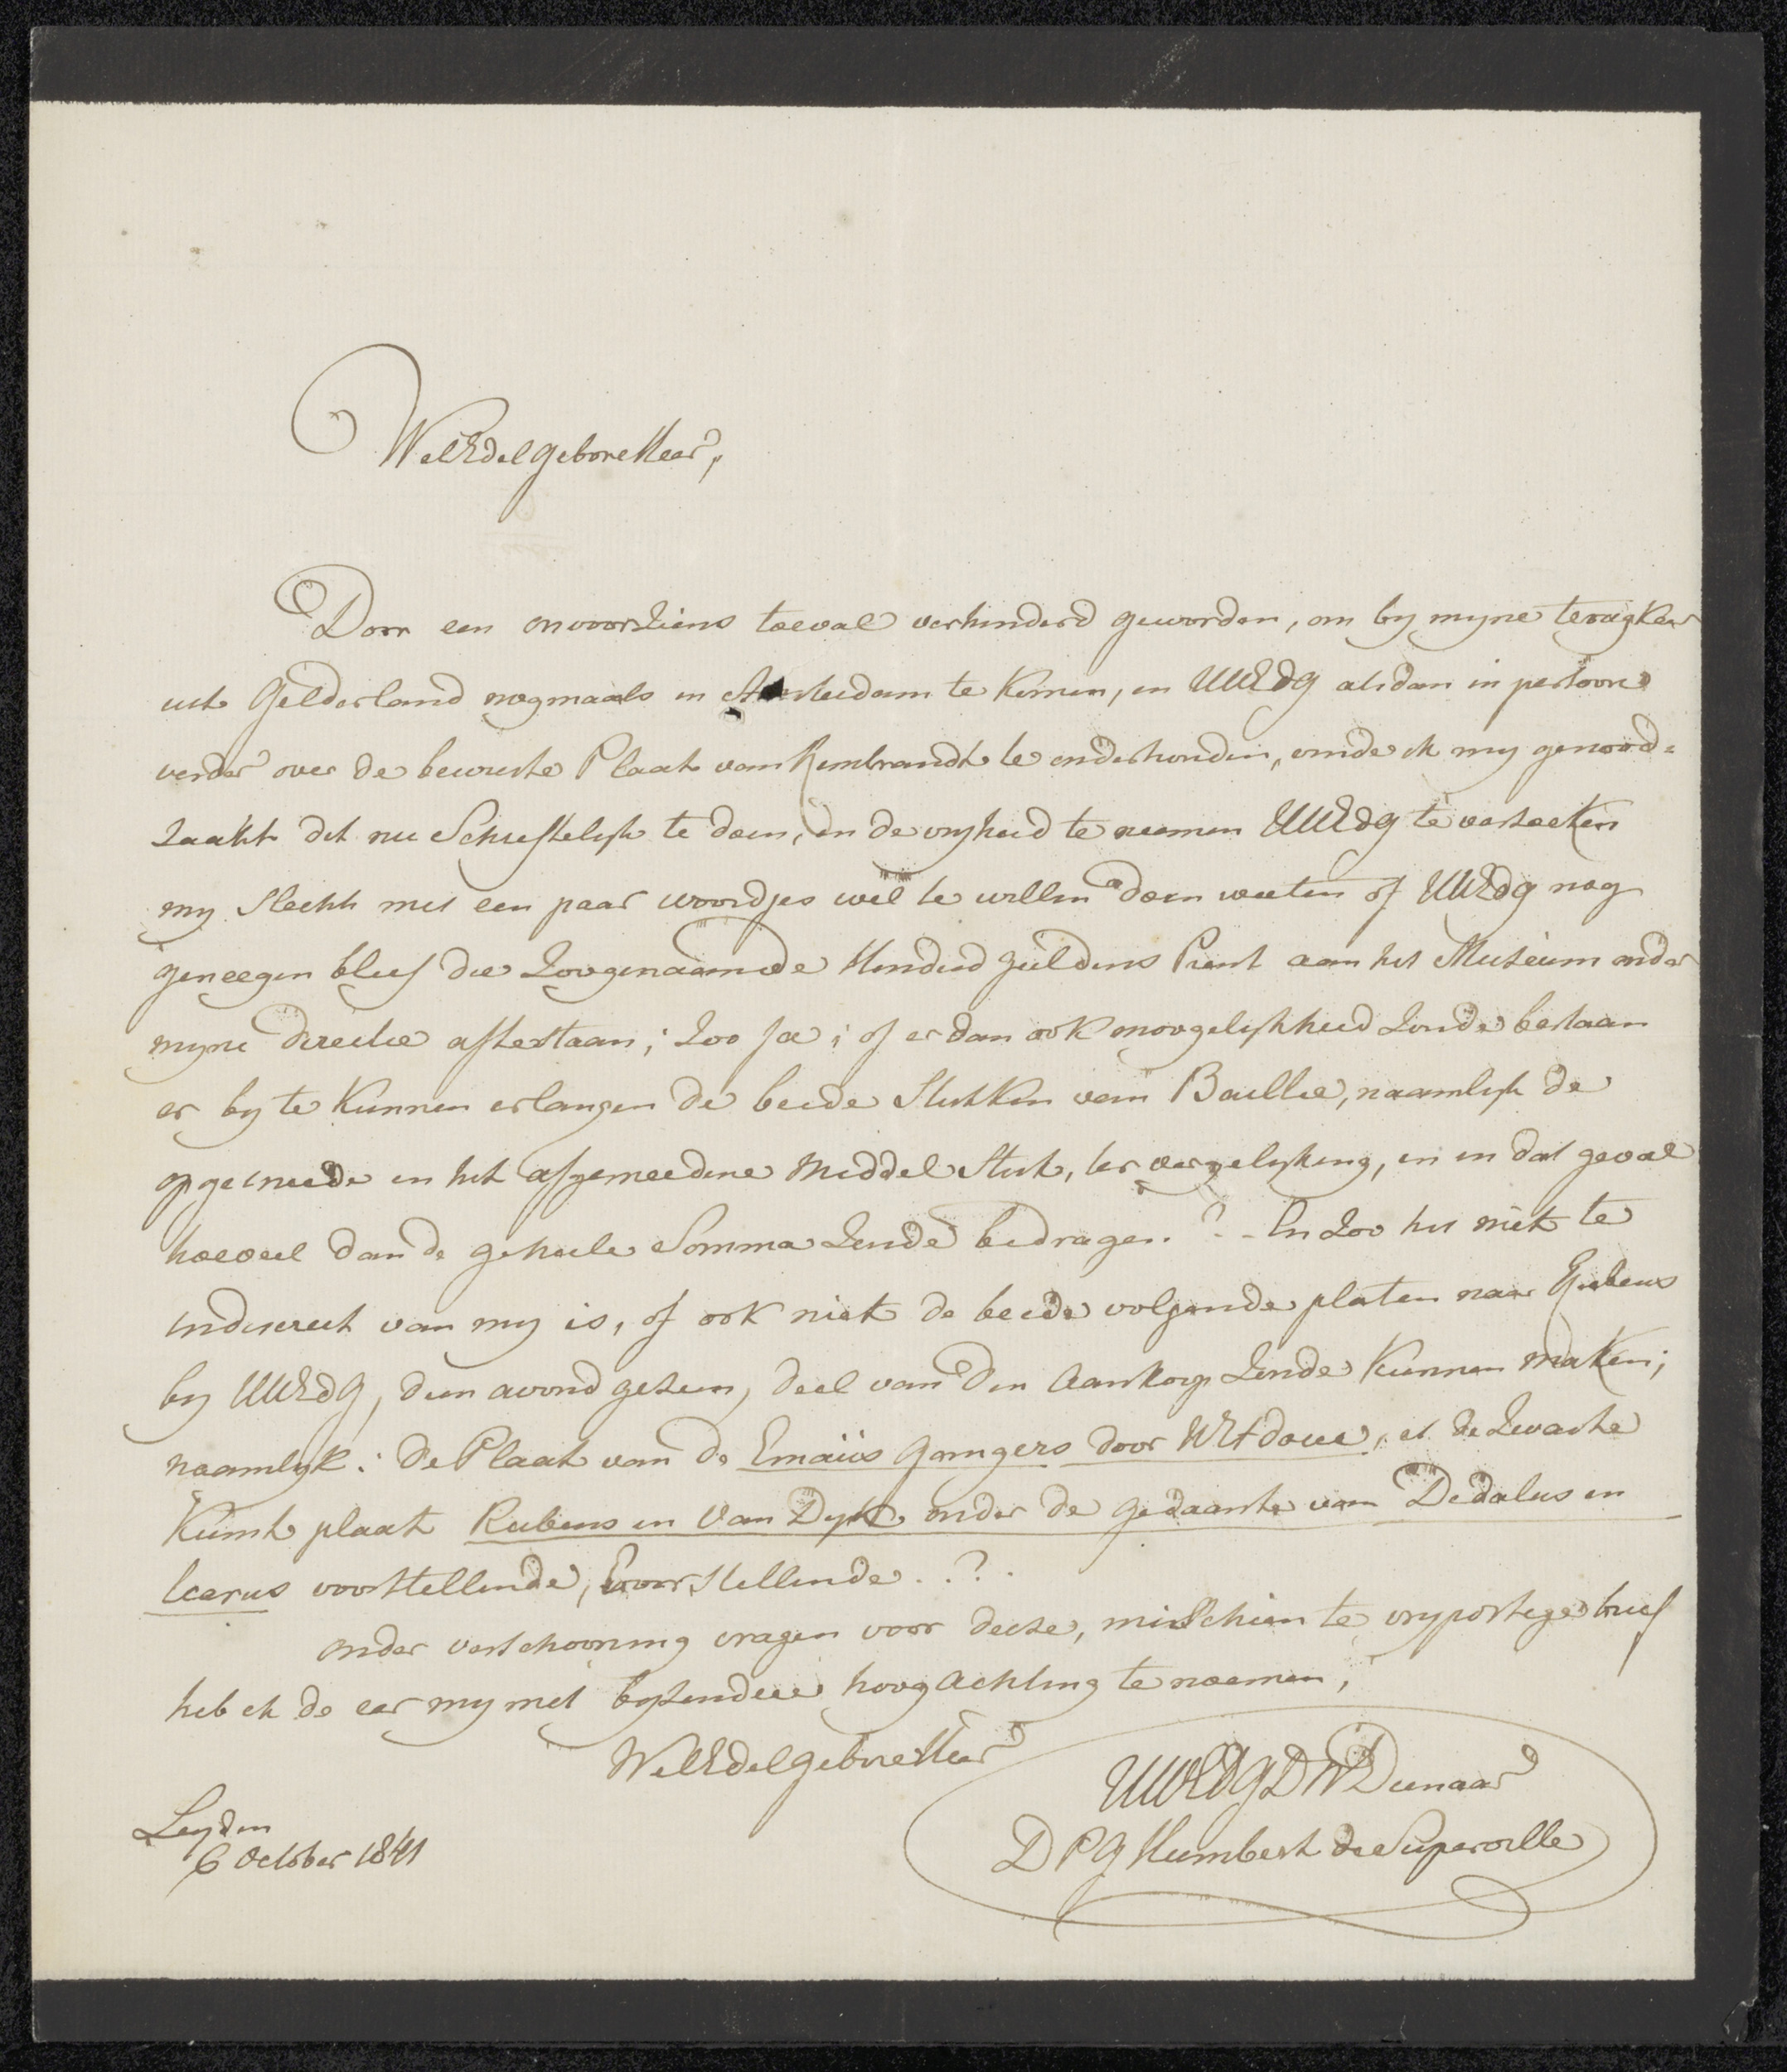 WelEdelgeboreHeer,
Door een onvoorziens toeval verhinderd geworden, om by myne terugkeer
uit Gelderland nogmaals in Amsterdam te komen, en UWEdG alsdan in persoon
verder over de bewuste Plaat van Rembrandt te onderhouden, vinde ik my genood=
zaakt dit nu Schriftelyk te doen, en de vryheid te neemen UWEdG te verzoeken
my slecht met een paar woordjes wel te willen doen weeten of UWEdG nog
geneegen bleef die Zoogenaamde Honderd guldens Prent aan het Museum onder
myne directie afte staan; Zoo Ja; of er dan ook moogelykheid Zoude bestaan
er by te kunnen erlangen de beide Stukken van Baillie, naamlyk de
opgesneede en het afgesneedene Middel Stuk, ter vergelyking, en in dat geval
hoeveel dan de geheele Somma Zoude bedragen. ? - En Zoo het niet te
indiscreet van my is, of ook niet de beide volgende platen naar Rubens
by UWEdG, dien avond gezien, deel van den Aankoop Zoude kunnen maken;
naamlyk: de Plaat van de Emaüs Gangers door Witdoue, et de Zwarte
Kunst plaat Rubens en Van Dyk onder de gedaante van Dedalus en
Icarus voorstellende, voorstellende . . ? .
onder verschooning vragen voor deeze, misschien te vrypostige brief
heb ik de eer my met byzondere hoog Achting te noemen,
WelEdelgeboreHeer
UWEdGDWDienaar
D P G Humbert de Superville
Leyden
6 October 1841